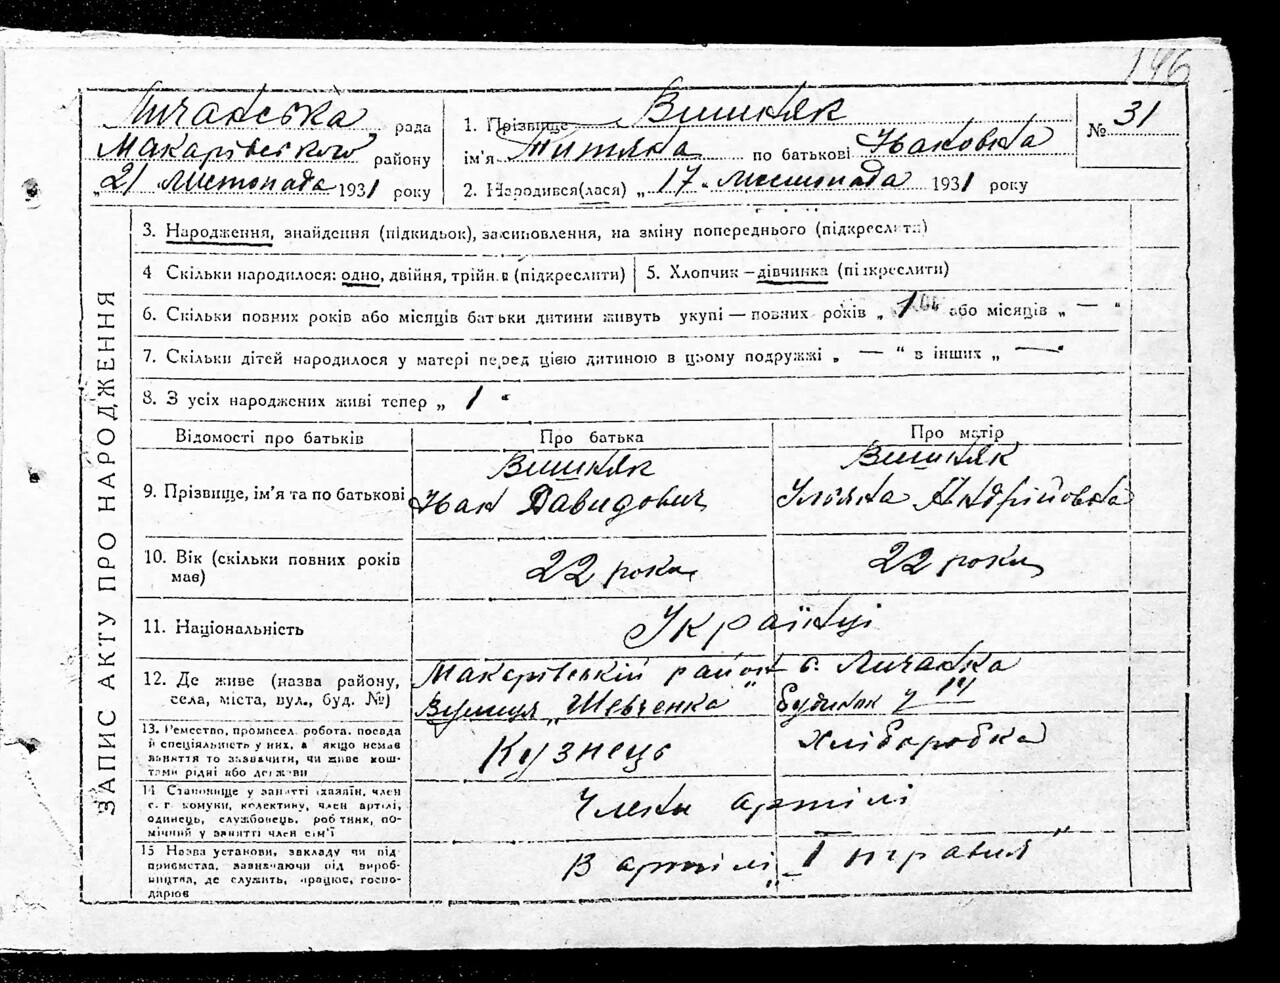 146
Личанська рада
Макарівського району
„21 листопада 1931 року
1. Прізвище Вишняк
ім'я Титяна по батькові Івановна
2. Народився(лася) „17" листопада 1931 року
№ 31
ЗАПИС АКТУ ПРО НАРОДЖЕННЯ
3. Народження, знайдення (підкидьок), засиновлення, на зміну попереднього (підкреслити)
4 Скільки народилося: одно, двійня, трійня (підкреслити)
5. Хлопчик – дівчинка (підкреслити)
6. Скільки повних років або місяців батьки дитини живуть укупі — повних років „ 1 або місяців „ — "
7. Скільки дітей народилося у матері перед цією дитиною в цьому подружжі „ — " в інших „ — "
8. З усіх народжених живі тепер „ 1 "
Відомості про батьків
Про батька
Про матір
9. Прізвище, ім'я та по батькові
Вишняк
Іван Давидович
Вишняк
Уляна Андрійовна
10. Вік (скільки повних років
має)
22 роки
22 роки
11. Національність
Українці
12. Де живе (назва району,
села, міста, вул., буд. №)
Макарівській район с. Личанка
Вулиця „Шевченка" будинок
13. Ремество, промисел. робота. посада
й спеціяльність у них, а якщо немає
заняття то зазначити, чи живе кош-
тами рідні або держави
Кузнець
Хліборобка
14 Становище у занятті (хазяїн, член
с. г комуни, колективу, член артілі,
одинець, службовець, робітник, по-
мічний у занятті член сім'ї
Члени артілі
15 Назва установи, закладу чи під-
приємства, зазначаючи рід вироб-
ництва, де служить, працює, госпо-
дарює
В артілі „1 травня"